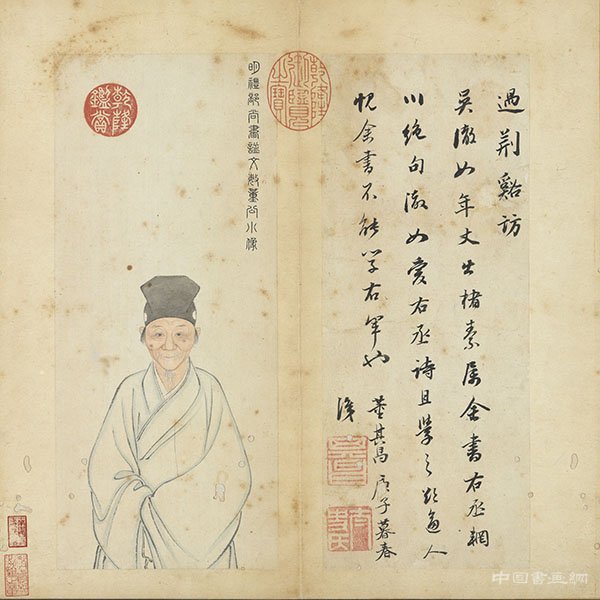 過荆谿訪
吳澈如年丈出楮素屬余書右丞輞
川絶句澈如愛右丞詩且學之逼人
愧余書不能學右軍也
董其昌庚子暮春
識
乾隆御覽之寶
明禮部尚書諡文敏董公小像
乾隆鑑賞
中国書画網